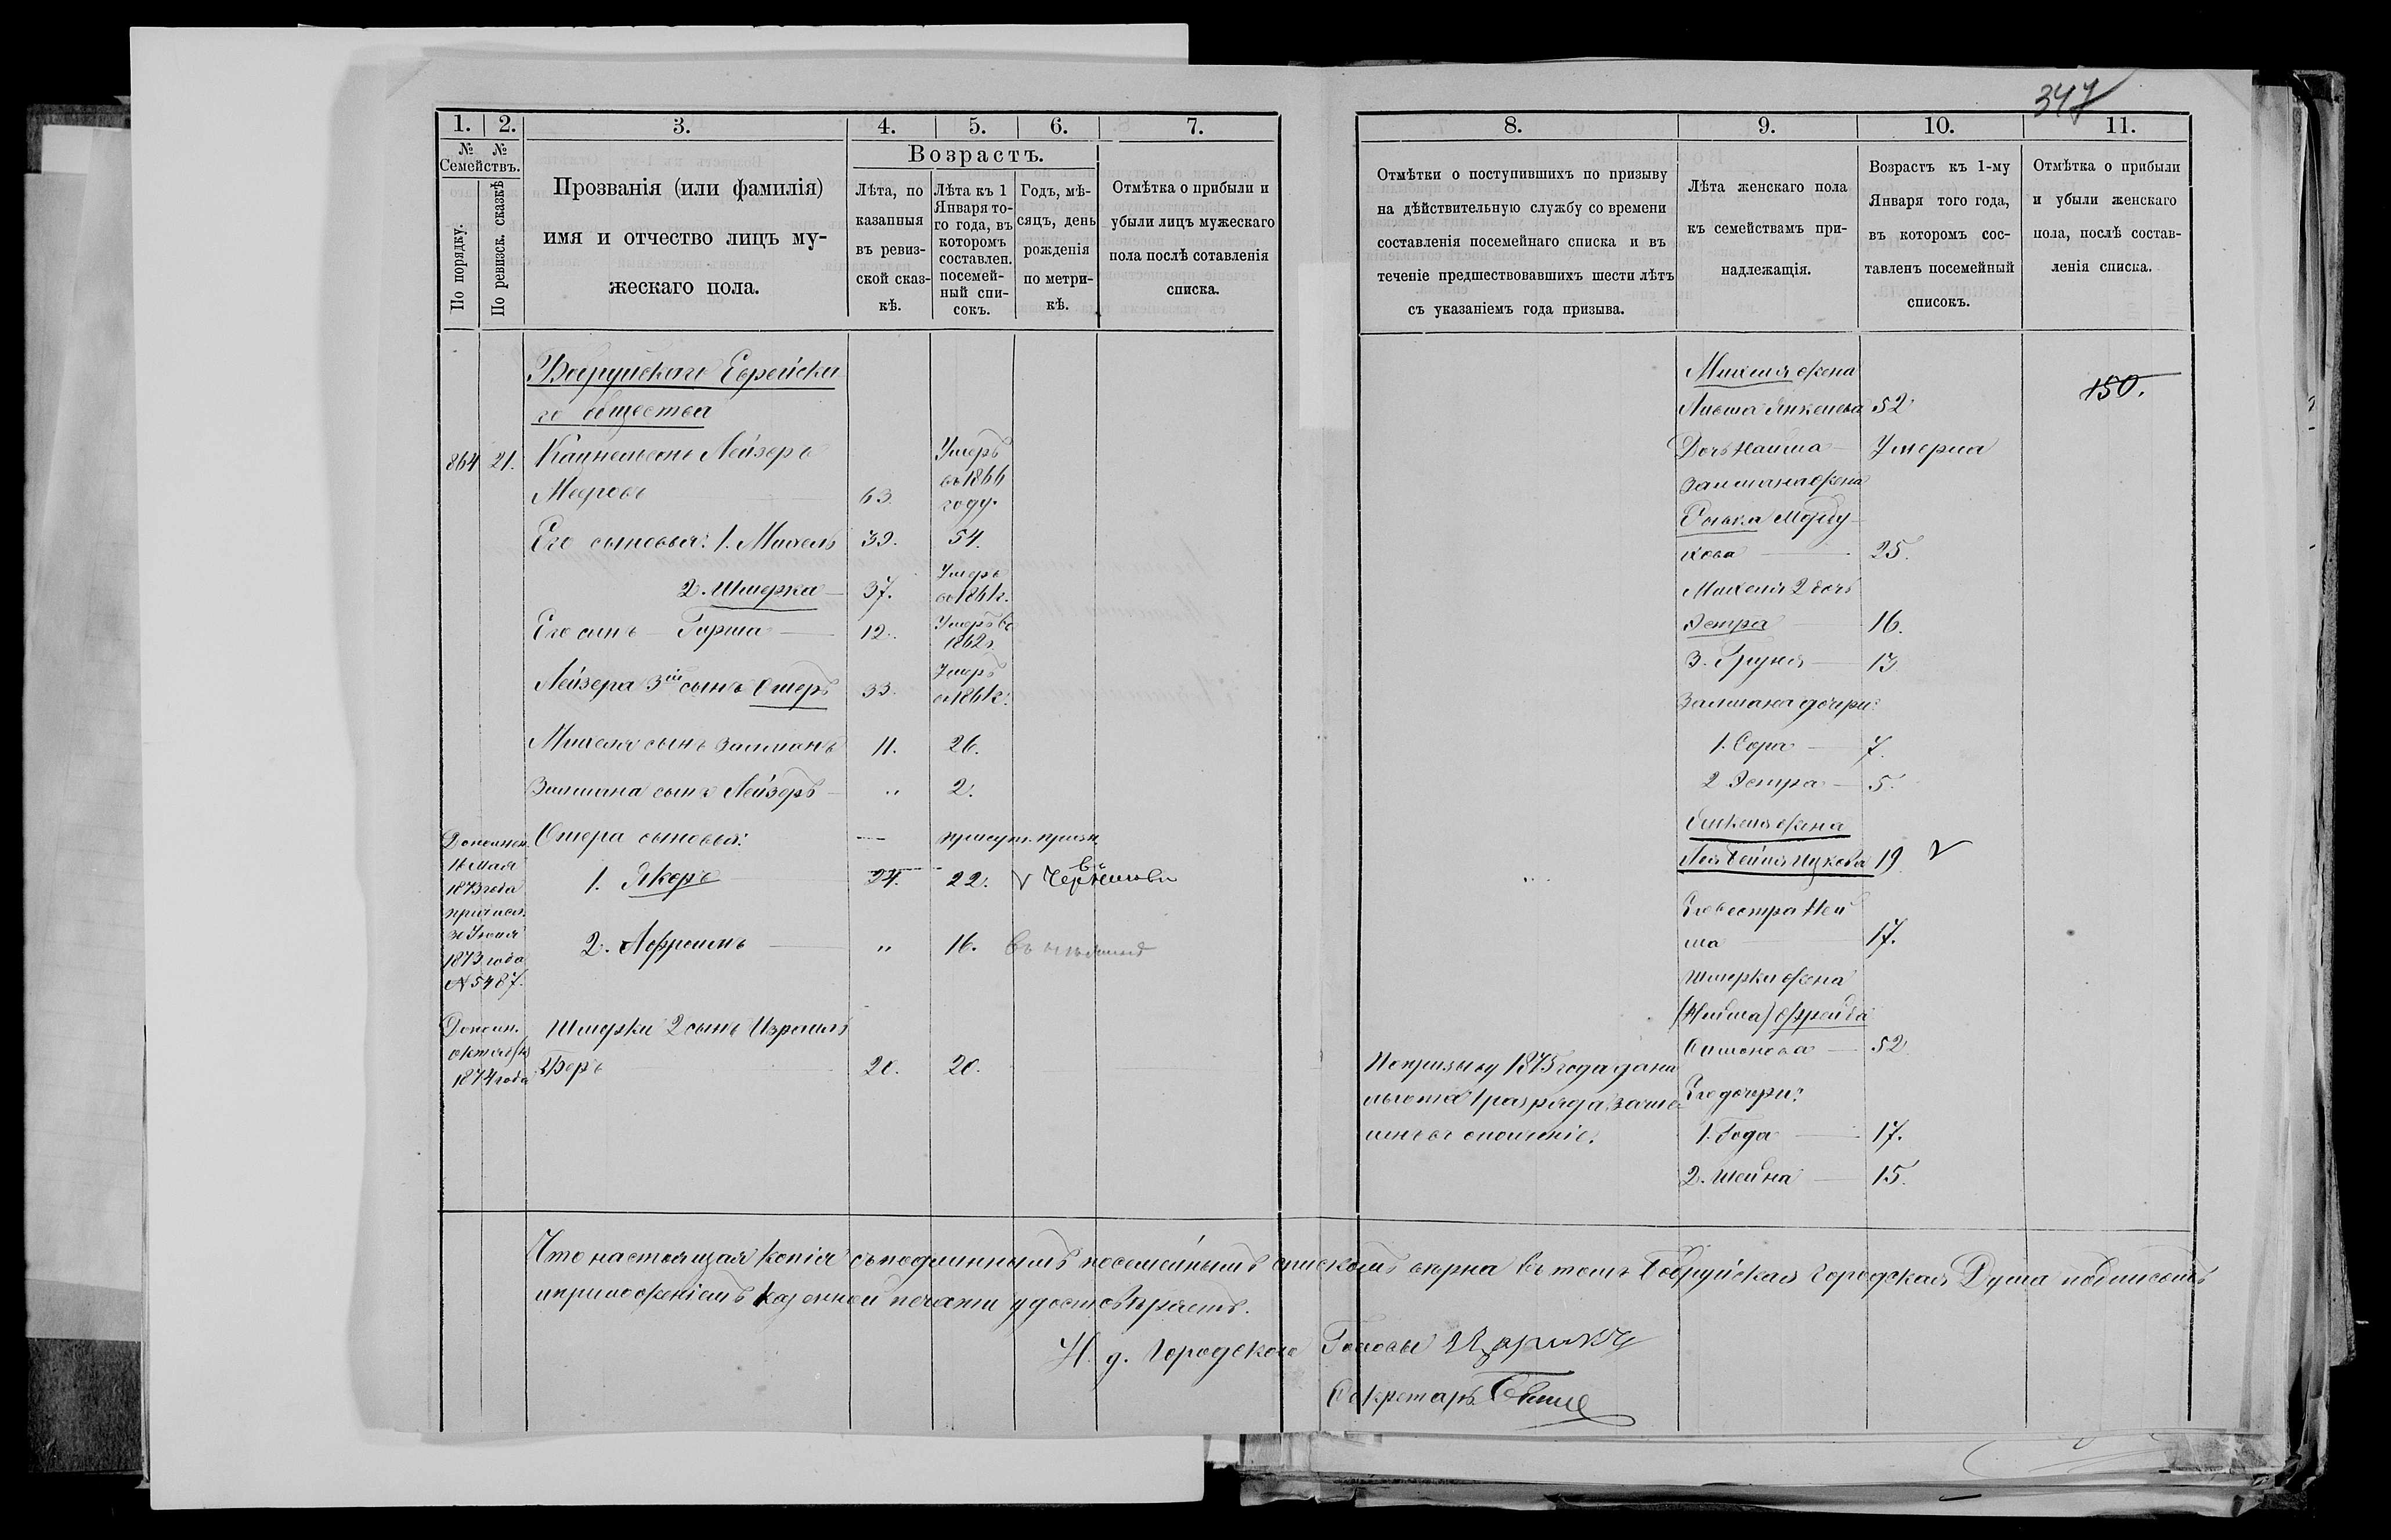 347
1. 2. 3. 4. 5. 6. 7.
№ №
Семействъ.
По порядку.
По ревизск. сказкѣ
Прозванія (или фамилія)
имя и отчество лицъ му-
жескаго пола.
Возрастъ.
Лѣта, по
казанныя
въ ревиз-
ской сказ-
кѣ.
Лѣта къ 1
Января то-
го года, въ
которомъ
составлен.
посемей-
ный спи-
сокъ.
Годъ, мѣ-
сяцъ, день
рожденія
по метри-
кѣ.
Отмѣтка о прибыли и
убыли лицъ мужескаго
пола послѣ сотавленія
списка.
Бобруйскаго Еврейска
го общества
864 21. Кацнельсонъ Лейзеръ
Мееровъ 63. Умеръ
въ 1866
году.
Его сыновья: 1. Михель 39. 54.
2. Шмерка 37. Умеръ
въ 1861г.
Его сынъ Гирша 12. Умеръ въ
1862г.
Лейзера 3ій сынъ Ошеръ 33. Умеръ
въ 1861г.
Михеля сынъ Залманъ 11. 26.
Залмана сынъ Лейзеръ „ 2.
Ошера сыновья:
1. 24. 22.
2. „ 16.
Дополнен.
Мая
1873 года
причисл.
1873 года
№ 5487.
Дополн.
октября
1874 года
Шмерки 2 сынъ Израиль
Беръ 20. 20.
8. 9. 10. 11.
Отмѣтки о поступившихъ по призыву
на дѣйствительную службу со времени
составленія посемейнаго списка и въ
теченіе предшествовавшихъ шести лѣтъ
съ указаніемъ года призыва.
Лѣта женскаго пола
къ семействамъ при-
надлежащія.
Возрастъ къ 1-му
Января того года,
въ которомъ сос-
тавленъ посемейный
списокъ.
Отмѣтка о прибыли
и убыли женскаго
пола, послѣ состав-
ленія списка.
150.
Михеля жена
Янкелева 52
Дочь Умерла
Залмана жена
Морду
хова 25.
Михеля 2 дочь
Эстра 16.
3. Груня 13
Залмана дочери:
1. Сора 7.
2 Эстра 5.
жена
Ицкова 19
Его сестра
17.
Шмерки жена
Фрейда
Симонова 52
Его дочери:
1. Года 17.
2. Шейна 15.
По призыву 1875 года дана
льгота 1 разряда
въ ополченіе.
Что настоящая копія съ подлиннымъ посемейнымъ спискомъ вѣрна въ томъ Бобруйская Городская Дума подписомъ
и приложеніемъ казенной печати удостовѣряетъ.
И. д. Городскаго Головы
Секретарь